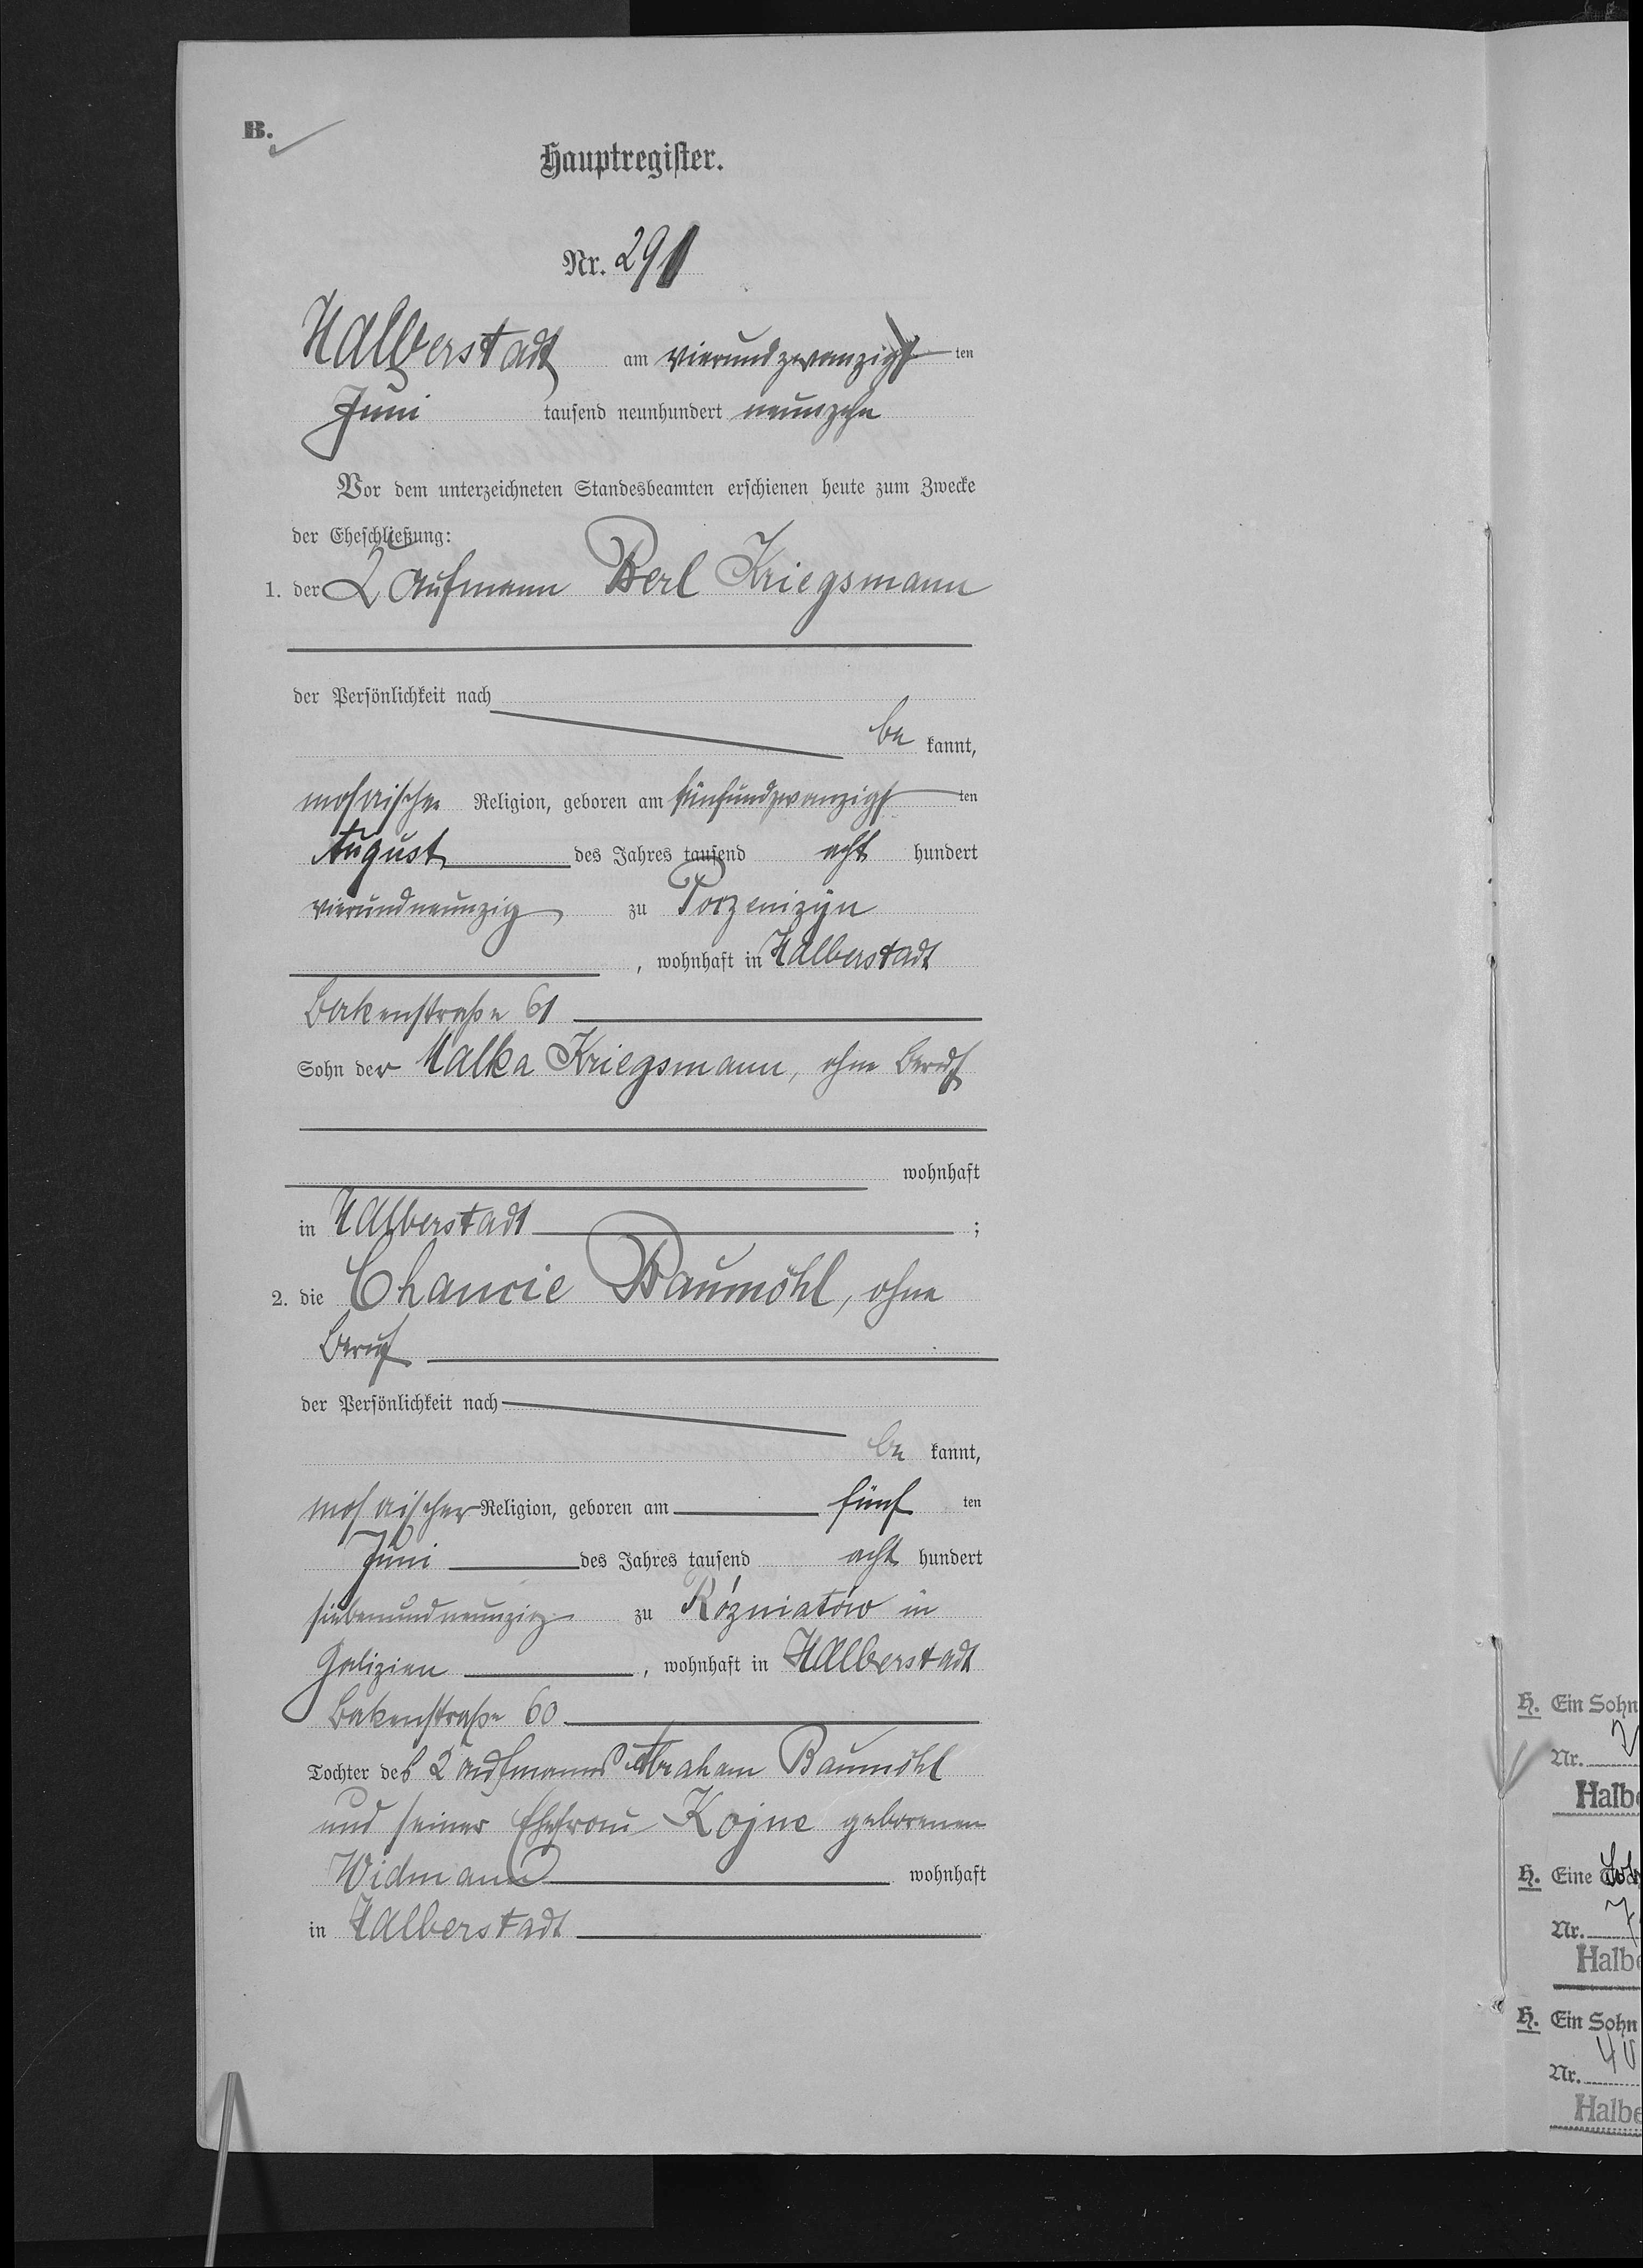 B.
Hauptregister.
Nr. 291
Halberstadt am vierundzwanzigsten
Juni tausend neunhundert neunzehn
Vor dem unterzeichneten Standesbeamten erschienen heute zum Zwecke
der Eheschließung:
1. der Kaufmann Berl Kriegsmann
der Persönlichkeit nach
be kannt,
mosaischer Religion, geboren am fünfundzwanzigsten
August des Jahres tausend acht hundert
vierundneunzig zu
, wohnhaft in Halberstadt
Bakenstraße 61
Sohn der Malka Kriegsmann, ohne Beruf
wohnhaft
in Halberstadt ;
2. die Chancie Baumöhl, ohne
Beruf
der Persönlichkeit nach
be kannt,
mosaischer Religion, geboren am fünf ten
Juni des Jahres tausend acht hundert
siebenundneunzig zu Rózniatów in
Galizien , wohnhaft in Halberstadt
Bakenstraße 60
Tochter des Kaufmanns Abraham Baumöhl
und seiner Ehefrau Kojne geborenen
Widmann wohnhaft
in Halberstadt
H. Ein Sohn
Nr.
Halbe
H. Eine
Nr. 7
Halbe
H. Ein Sohn
Nr. 40
Halbe